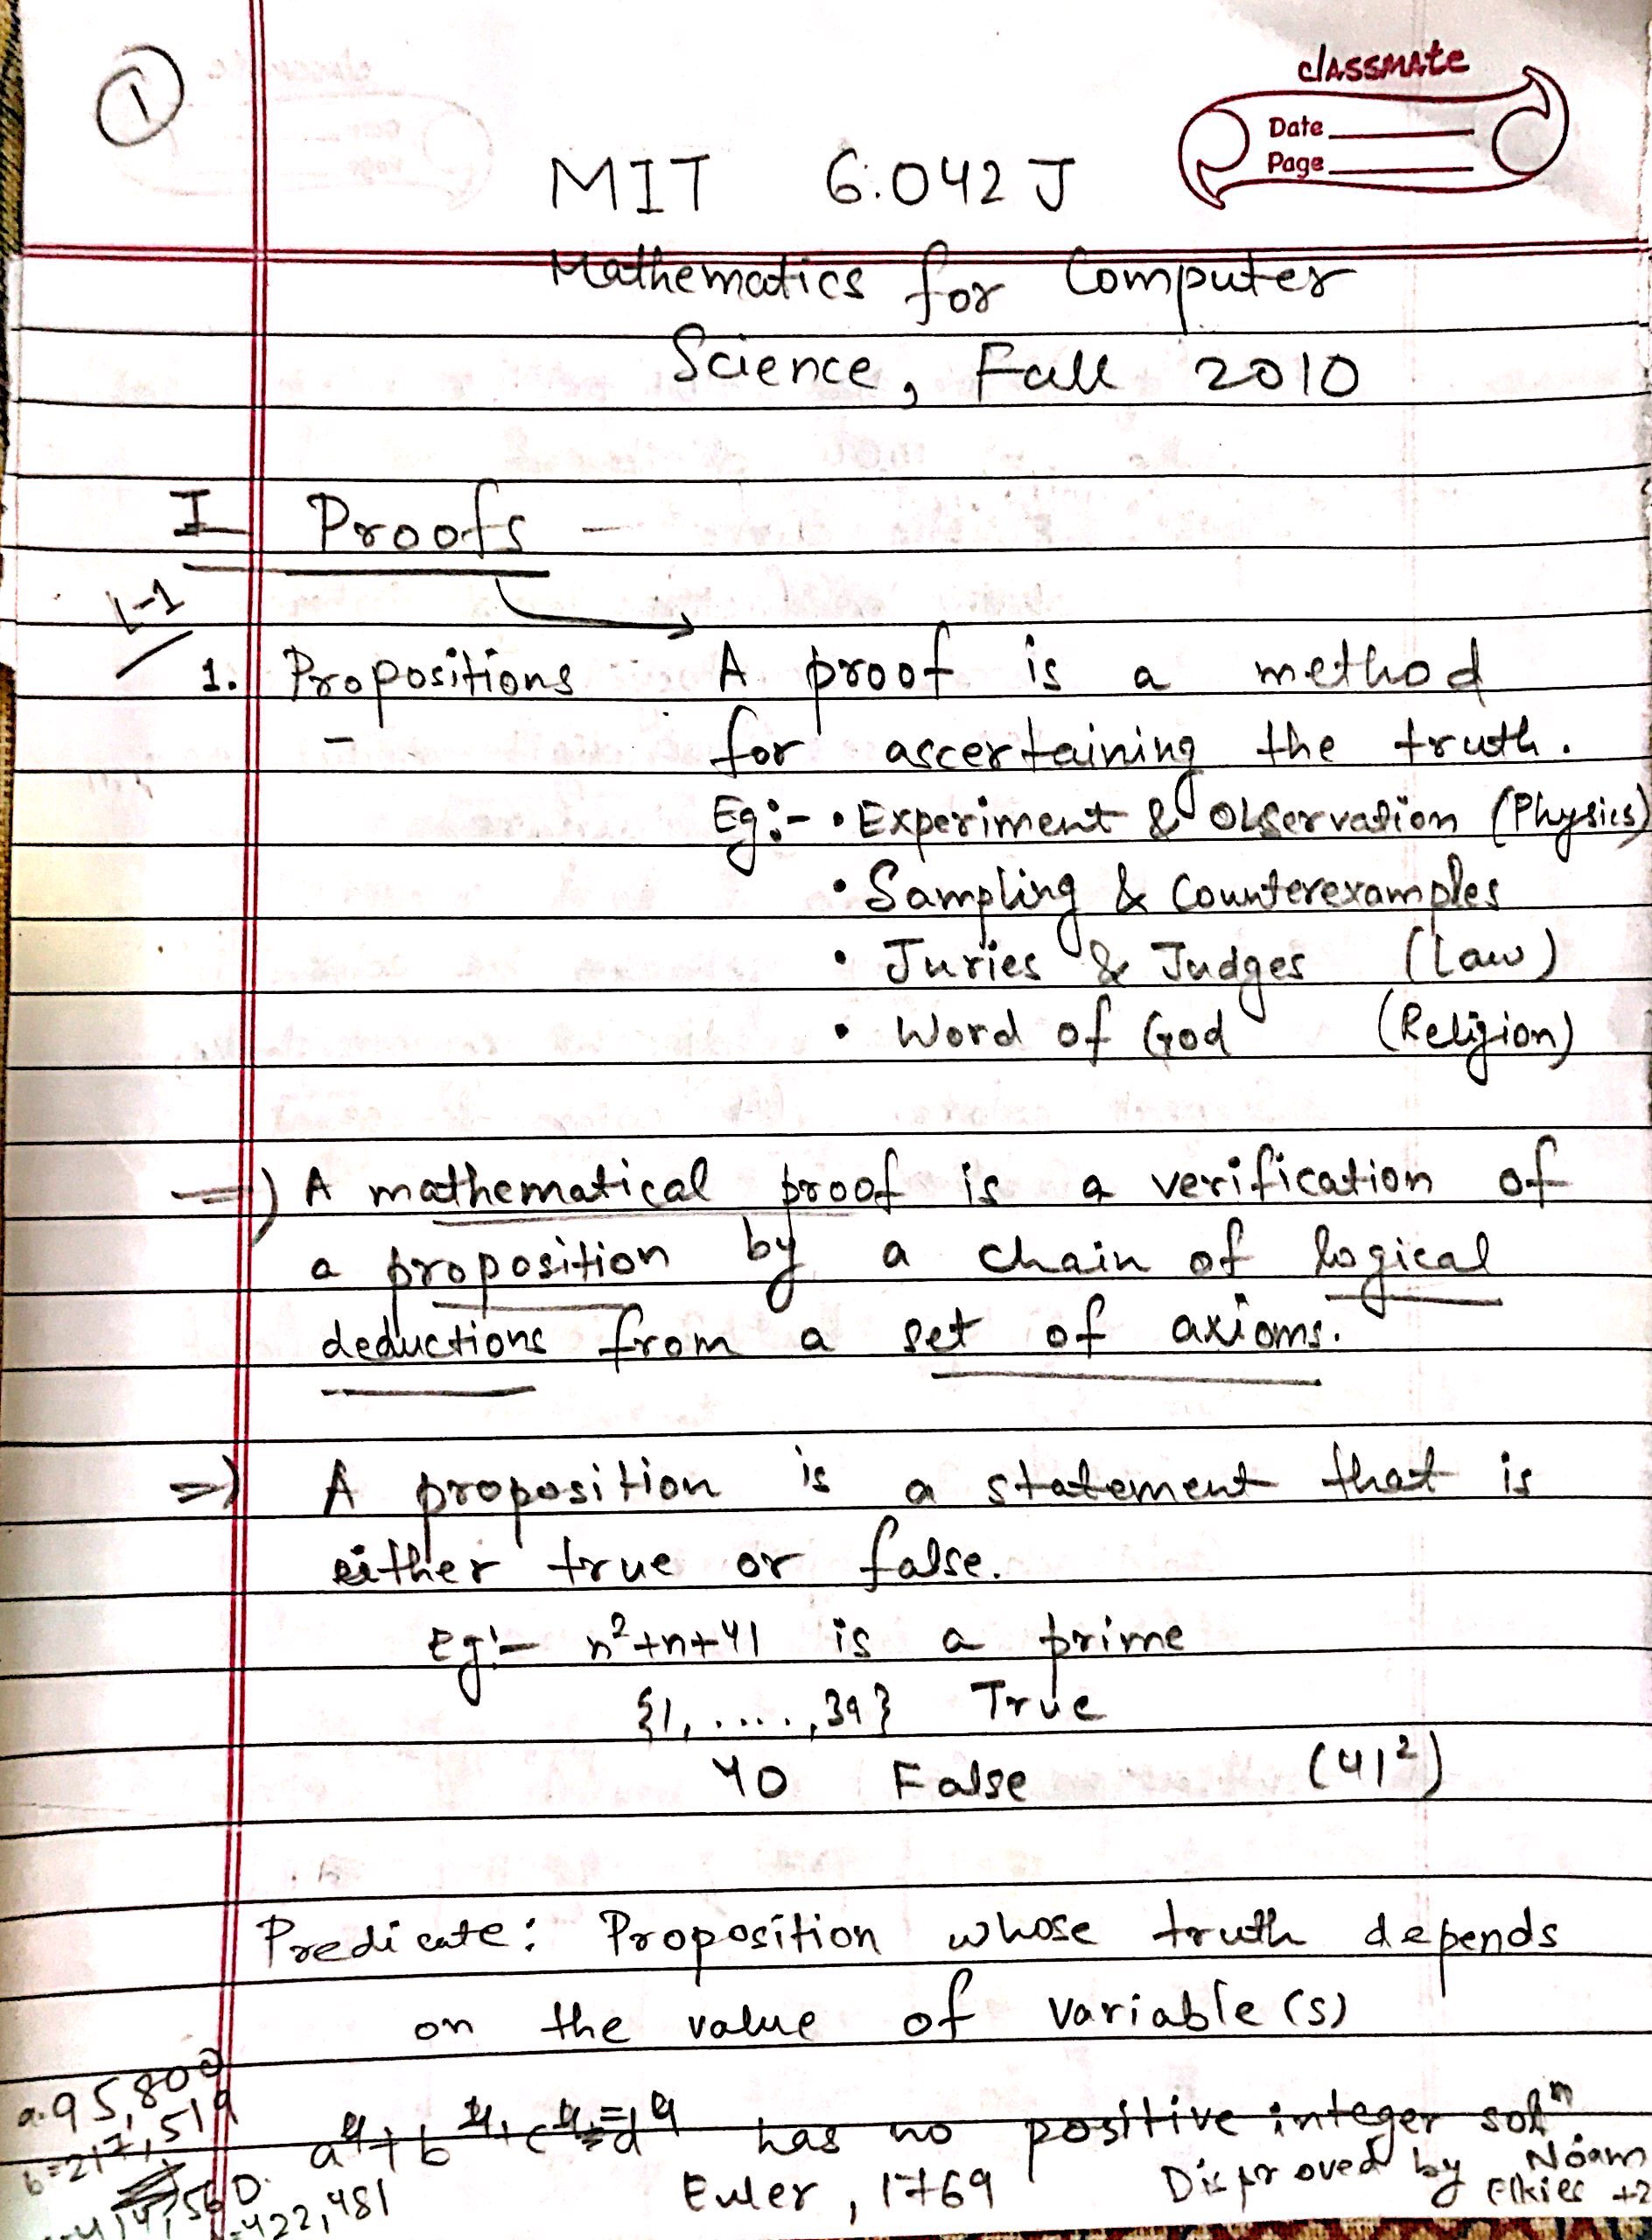 1
classmate
Date
Page
MIT 6.042J
Mathematics for Computer
Science, Fall 2010
I Proofs -
L-1
1. Propositions - A proof is a method
for ascertaining the truth.
Eg:- • Experiment & Observation (Physics)
• Sampling & Counterexamples
• Juries & Judges (Law)
• Word of God (Religion)
=) A mathematical proof is a verification of
a proposition by a chain of logical
deductions from a set of axioms.
=) A proposition is a statement that is
either true or false.
Eg:- n²+n+41 is a prime
{1, ....., 39} True
40 False (41²)
Predicate: Proposition whose truth depends
on the value of variable(s)
a⁴+b⁴+c⁴=d⁴ has no positive integer solⁿ.
Euler, 1769 Disproved by Noam
Elkies
a=95,800
b=217,519
414,560
422,481